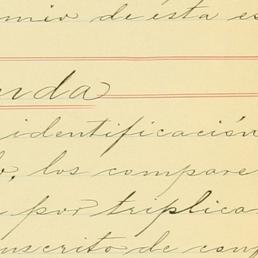 mio de ésta es
nda
identificación
o, los compare
por triplica
nscrito de conf